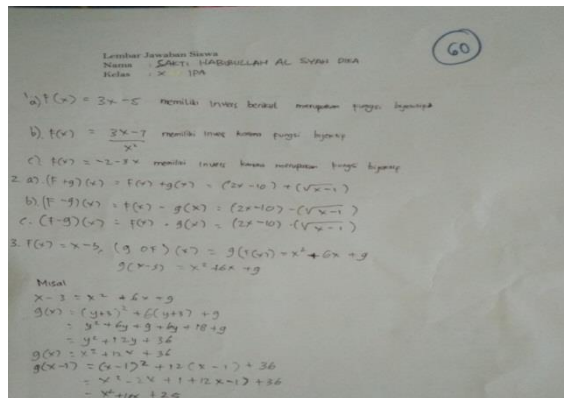 60
Lembar Jawaban Siswa
Nama : SAKTI HABIBULLAH AL SYAH DIKA
Kelas : X IPA
1a) f(x) = 3x - 5 memiliki invers berikut merupakan fungsi bijektif
b). f(x) = 3x - 7 / x² memiliki invers karena fungsi bijektif
c) f(x) = -2 - 3x memiliki invers karena merupakan fungsi bijektif
2. a). (F + g)(x) = F(x) + g(x) = (2x - 10) + (√x-1)
b). (F - g)(x) = F(x) - g(x) = (2x - 10) - (√x-1)
c. (F - g)(x) = F(x) - g(x) = (2x - 10) - (√x-1)
3. F(x) = x - 3, (g o F)(x) = g(F(x)) = x² + 6x + 9
g(x-3) = x² + 6x + 9
Misal
x - 3 = x² + 6x + 9
g(x) = (y+3)² + 6(y+3) + 9
= y² + 6y + 9 + 6y + 18 + 9
= y² + 12y + 36
g(x) = x² + 12x + 36
g(x-1) = (x-1)² + 12(x-1) + 36
= x² - 2x + 1 + 12x - 1) + 36
= x² + 10x + 25